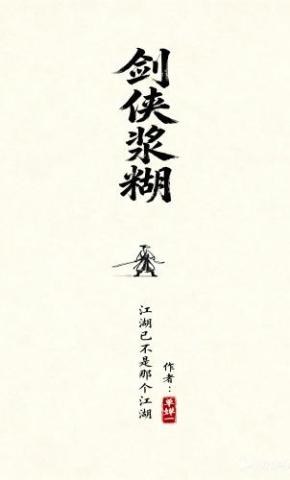 剑侠浆糊
江湖已不是那个江湖
作者：
单蝉一